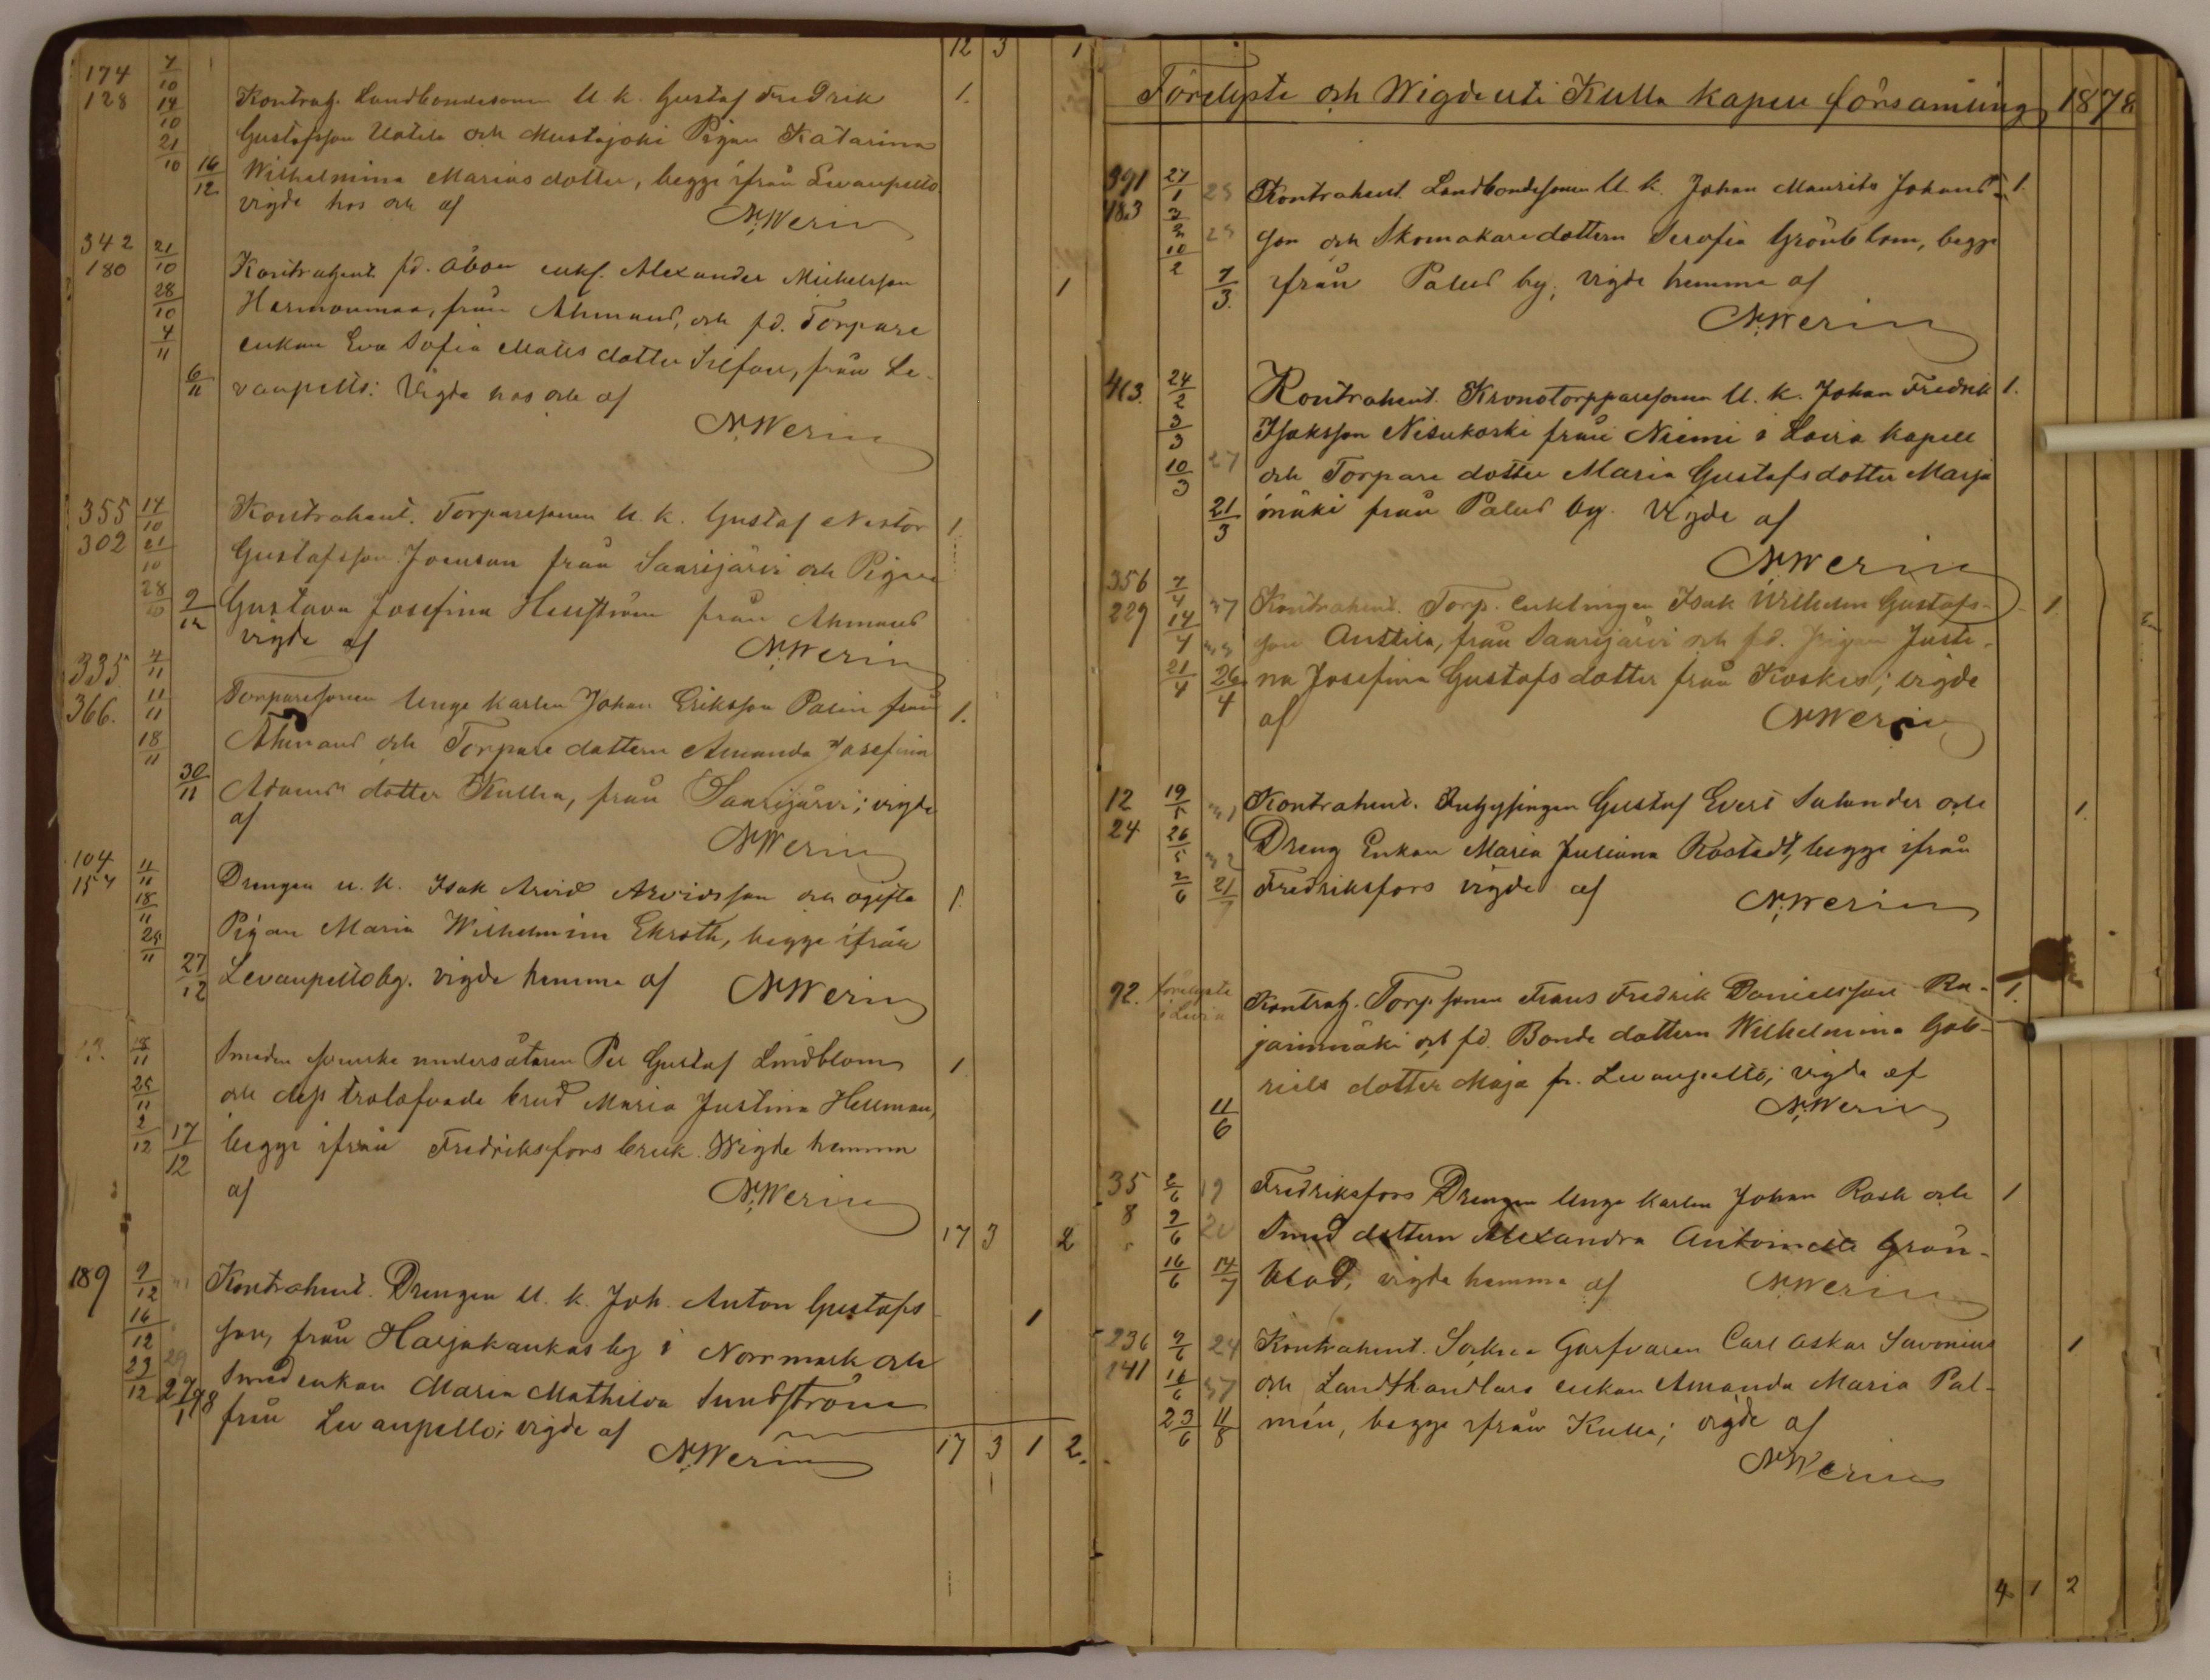 12 3 1
174 7/10 Kontrah. Landbondesonen U. k. Gustaf Fredrik 1.
128 14/10 Gustafsson Uotila och Mustajoki Pigan Katarina
21/10 16/12 Wilhelmina Mariasdotter, begge ifrån Levanpelto
vigde hos och af N. Werin
342 21/10 Kontrahent. fd. Åboen enkl. Alexander Michelsson
180 28/10 Harmonmaa, från Ahmaus, och fd. Torpare 1
4/11 enkan Eva Sofia Matts dotter, från Le-
6/11 vanpelto: Vigde hos och af
N. Werin
355 14/10 Kontrahent. Torparesonen U. k. Gustaf Nestor 1
302 21/10 Gustafsson Joensuu från Saarijärvi och Pigan
28/10 9/12 Gustava Josefina Hellström från Ahmaus
vigde af N. Werin
335 4/11
366. 11/11 Torparesonen Unge karlen Johan Eriksson Palin från 1.
18/11 Ahmaus och Torpare dottern Amanda Josefina
30/11 Adams dotter Kullea, från Saarijärvi; vigde
af N. Werin
104 11/11 Drengen u. k. Isak Arvid Arvidsson och ogifta 1.
154 18/11 Pigan Maria Wilhelmina Ekroth, begge ifrån
25/11 27/12 Levanpelto by. vigde hemma af N. Werin
18/11 Smeden svenska undersåtaren Per Gustaf Lindblom 1
25/11 och dess trolofvade brud Maria Justina Hellman,
2/12 17/12 begge ifrån Fredriksfors bruk. Wigde hemma
af N. Werin
17 3 2
189 9/12 Kontrahent. Drengen U. k. Joh. Anton Gustafs
16/12 son, från Harjakankas by i Norrmark och 1
23/12 Smedenkan Maria Mathilda Sundström
27/1 78 från Levanpelto; vigde af N. Werin
17 3 1 2.
Förelyste och Wigde uti Kulla kapell församling 1878
391 27/1 25 Kontrahent. Landbondesonen U. k. Johan Maurits Johans- 1.
183 3/2 25 son och Skomakaredottern Serafia Grönblom, begge
10/2 7/3. ifrån Palus by, vigde hemma af
N. Werin
413. 24/2 Kontrahent. Kronotorparesonen U. k. Johan Fredrik 1.
3/3 Isaksson Nisukoski från Niemi i Lavia Kapell
10/3 27 och Torpare dotter Maria Gustafsdotter Marja
21/3 mäki från Palus by. Vigde af
N. Werin
356 7/4 37 Kontrahent. Torp. enklingen Isak Wilhelm Gustafs- 1
229 14/4 son Anttila, från Saarijärvi och fd. pigan Justi-
21/4 26/4 na Josefina Gustafs dotter från Koskis; vigde
af N. Werin
12 19/5 Kontrahent. Inhysingen Gustaf Evert Salander och 1.
24 26/5 Dreng Enkan Maria Juliana Rostedt, begge ifrån
2/6 21/7 Fredriksfors vigde af N. Werin
92. förelyste i Lavia Kontrah. Torp. sonen Frans Fredrik Danielsson Ra- 1.
janmäki och fd. Bonde dottern Wilhelmina Gab-
riels dotter Maja fr. Levanpelto; vigde af
11/6 N. Werin
35 2/6 19 Fredriksfors Drengen Unge karlen Johan Rosk och 1
8 9/6 20 Smed dottern Alexandra Antoinette Grön-
16/6 14/7 blad, vigde hemma af N. Werin
236 9/6 24 Kontrahent. Sockne Garfvaren Carl Oskar Savonius 1
141 16/6 37 och Landthandlars enkan Amanda Maria Pal-
23/6 11/8 mén, begge ifrån Kulla; vigde af
N. Werin
4 1 2